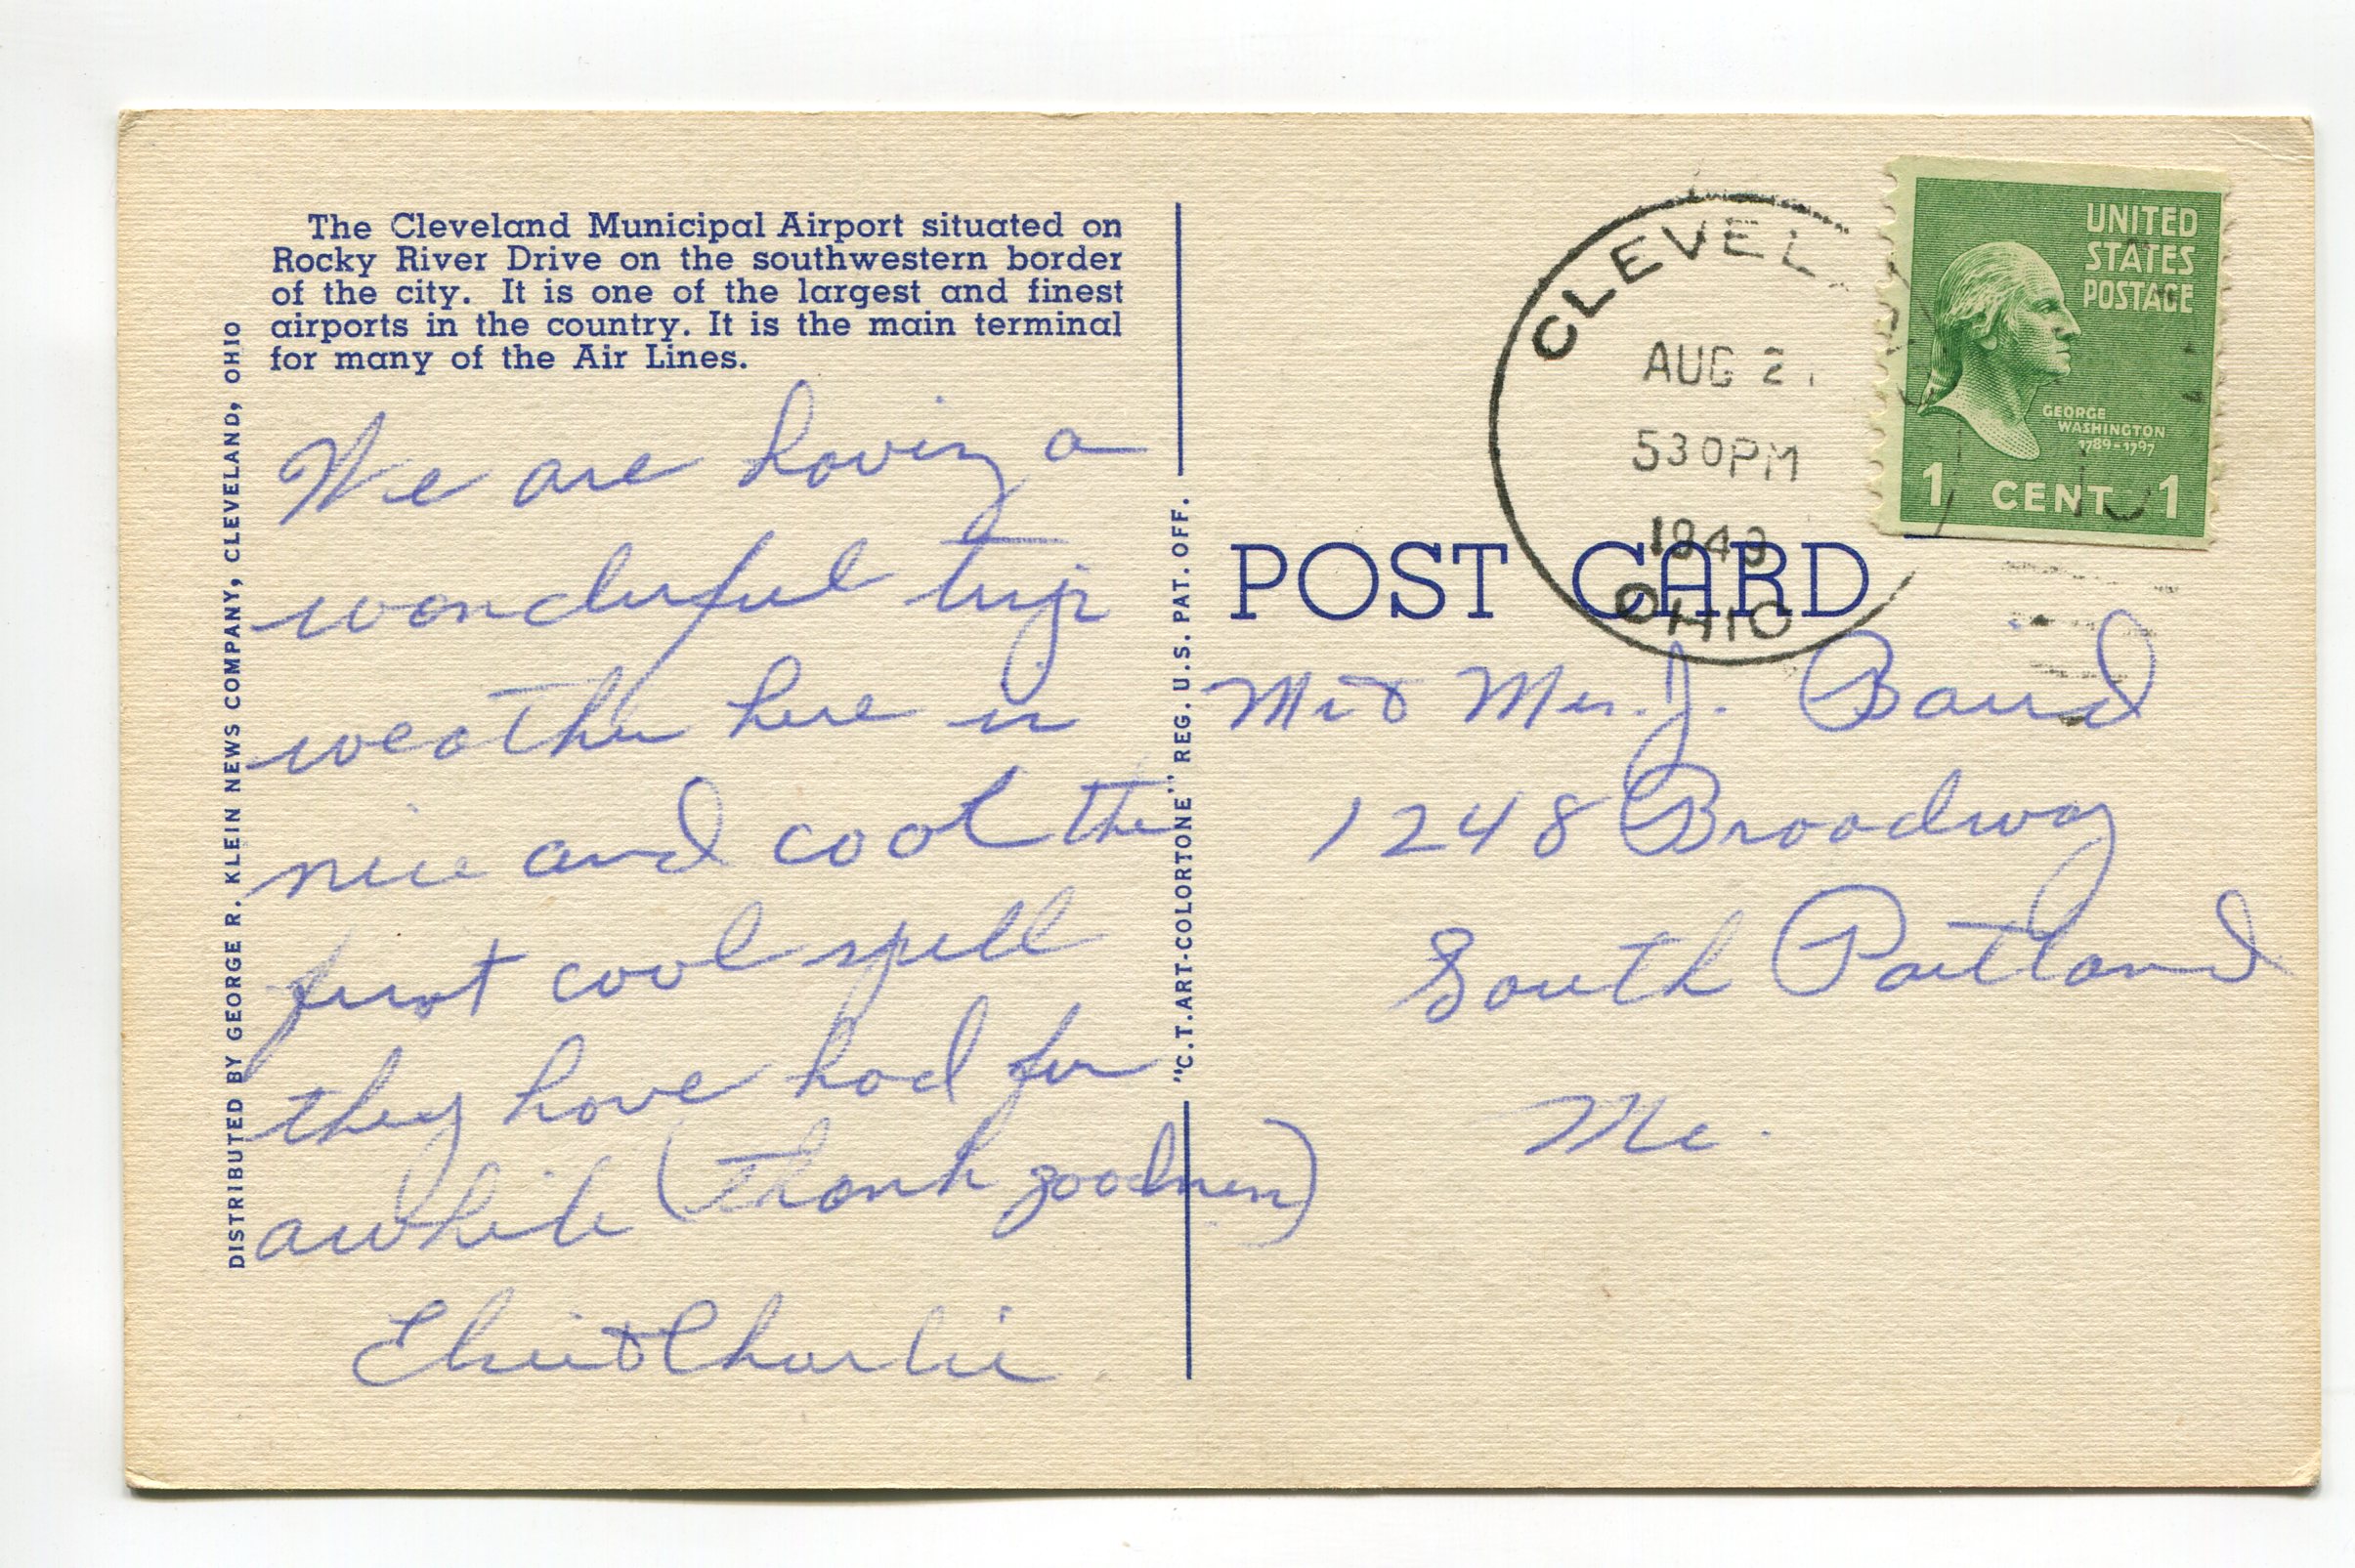 The Cleveland Municipal Airport situated on
Rocky River Drive on the southwestern border
of the city. It is one of the largest and finest
airports in the country. It is the main terminal
for many of the Air Lines.
We are having a
wonderful trip
weather here is
nice and cool the
first cool spell
they have had for
awhile (thank goodness)
Elsie & Charlie
DISTRIBUTED BY GEORGE R. KLEIN NEWS COMPANY, CLEVELAND, OHIO
"C.T.ART-COLORTONE" REG. U.S. PAT. OFF.
POST CARD
CLEVEL
AUG 2
530PM
OHIO
UNITED
STATES
POSTAGE
GEORGE
WASHINGTON
1789-1797
1 CENT 1
Mr & Mrs. J.
1248 Broadway
South Portland
Me.